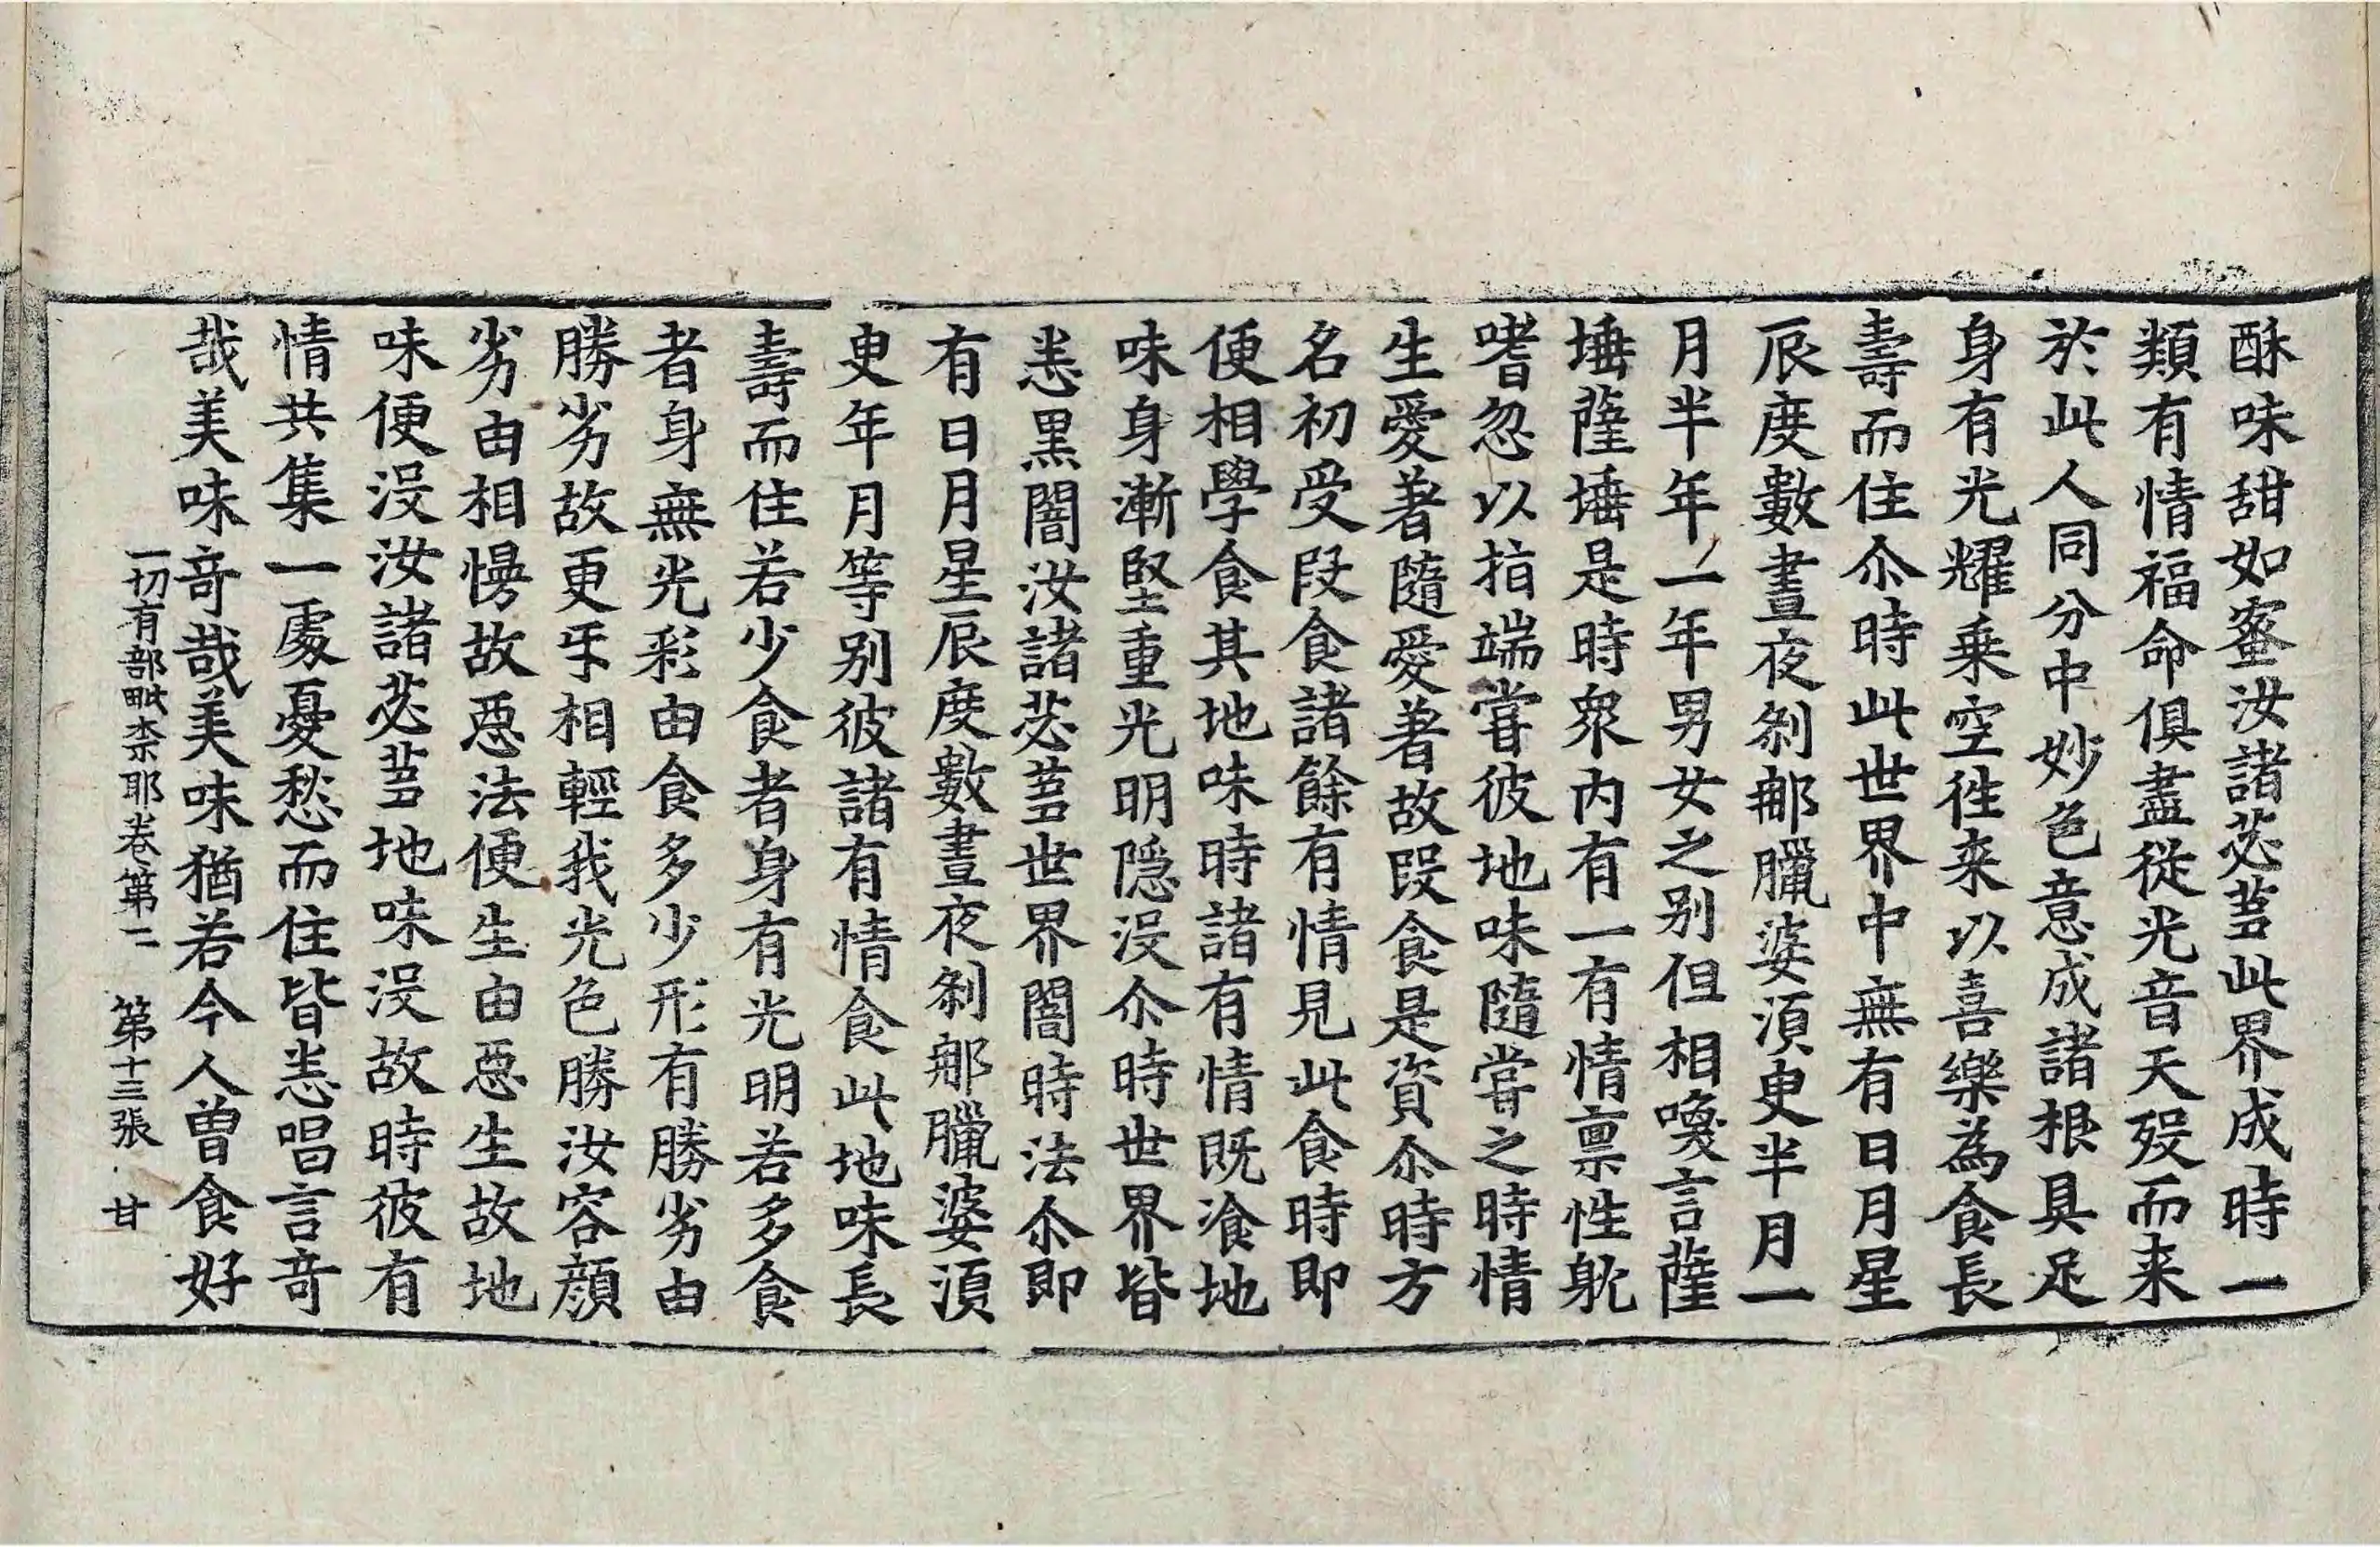 酥味甜如蜜汝諸苾蒭此界成時一
類有情福命俱盡從光音天歿而来
於此人同分中妙色意成諸根具足
身有光耀乗空徃来以喜樂為食長
壽而住尒時此世界中無有日月星
辰度數晝夜剎那臘婆湏臾半月一
月半年一年男女之别但相喚言薩
埵薩埵是時眾内有一有情禀性躭
嗜忽以指端甞彼地味隨甞之時情
生愛著隨愛著故段食是資尒時方
名初受段食諸餘有情見此食時即
便相學食其地味時諸有情既飡地
味身漸堅重光明隠沒尒時世界皆
悉黒闇汝諸苾蒭世界闇時法尒即
有日月星辰度數晝夜剎那臘婆湏
臾年月等别彼諸有情食此地味長
壽而住若少食者身有光明若多食
者身無光彩由食多少形有勝劣由
勝劣故更㸦相輕我光色勝汝容顔
劣由相慢故惡法便生由惡生故地
味便沒汝諸苾蒭地味沒故時彼有
情共集一處憂愁而住皆悉唱言竒
哉美味竒哉美味猶若今人曽食好
一切有部毗柰耶卷第二　第十三張　甘